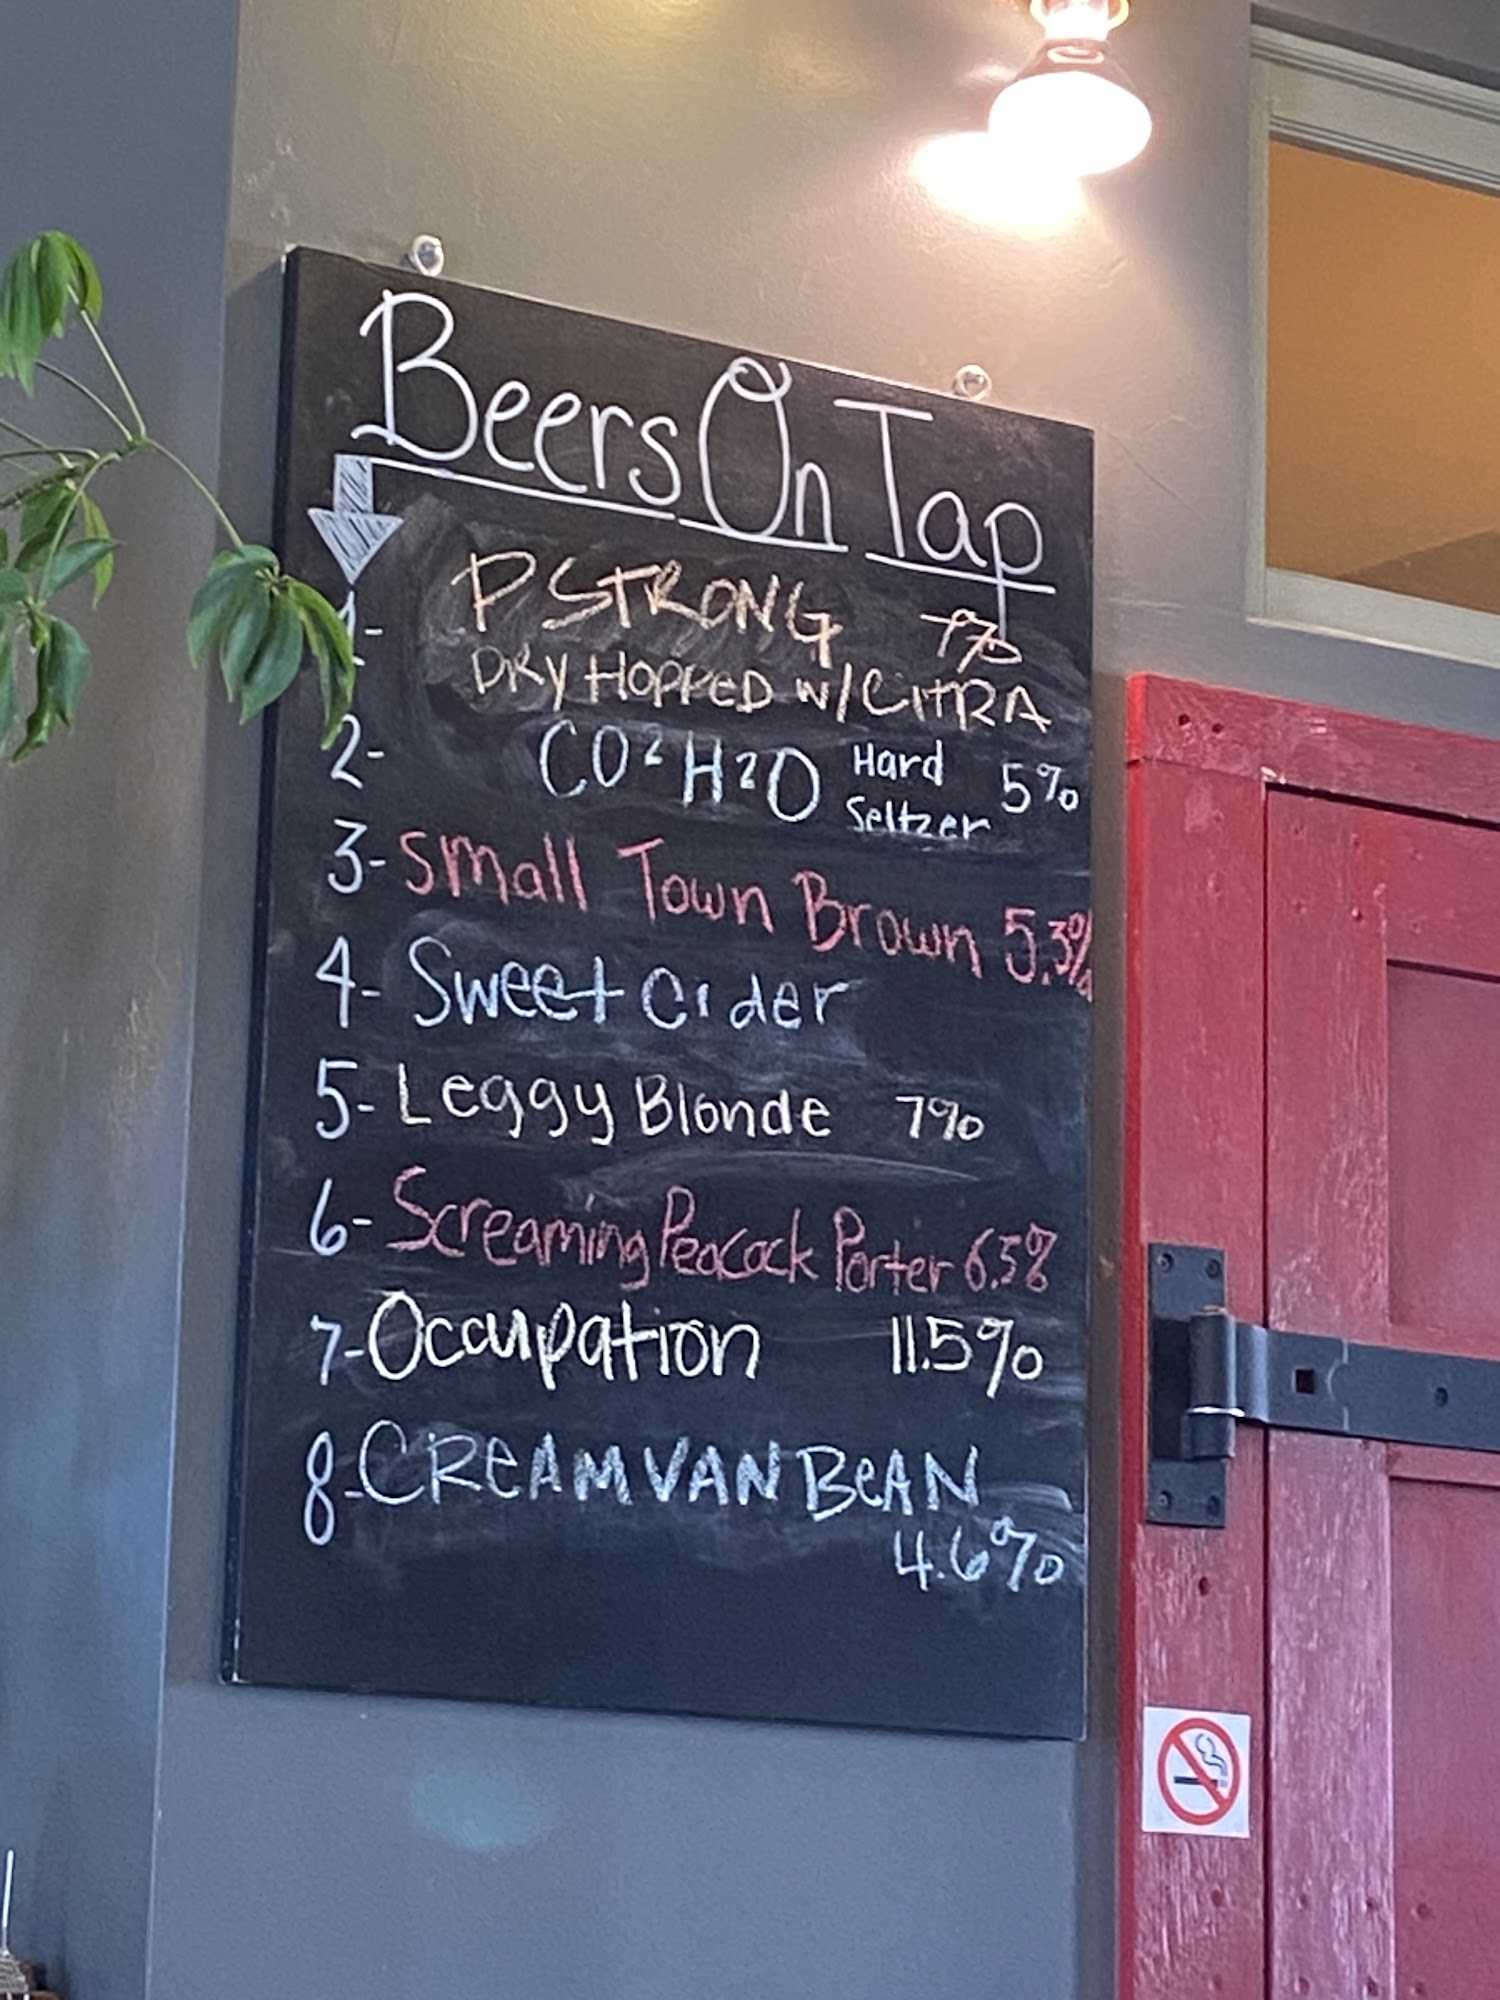 Beers On Tap
1- P STRONG 7%
DRY HOPPED W/ CITRA
2- CO²H²O Hard Seltzer 5%
3- Small Town Brown 5.3%
4- Sweet Cider
5- Leggy Blonde 7%
6- Screaming Peacock Porter 6.5%
7- Occupation 11.5%
8- CREAM VAN BEAN
4.6%